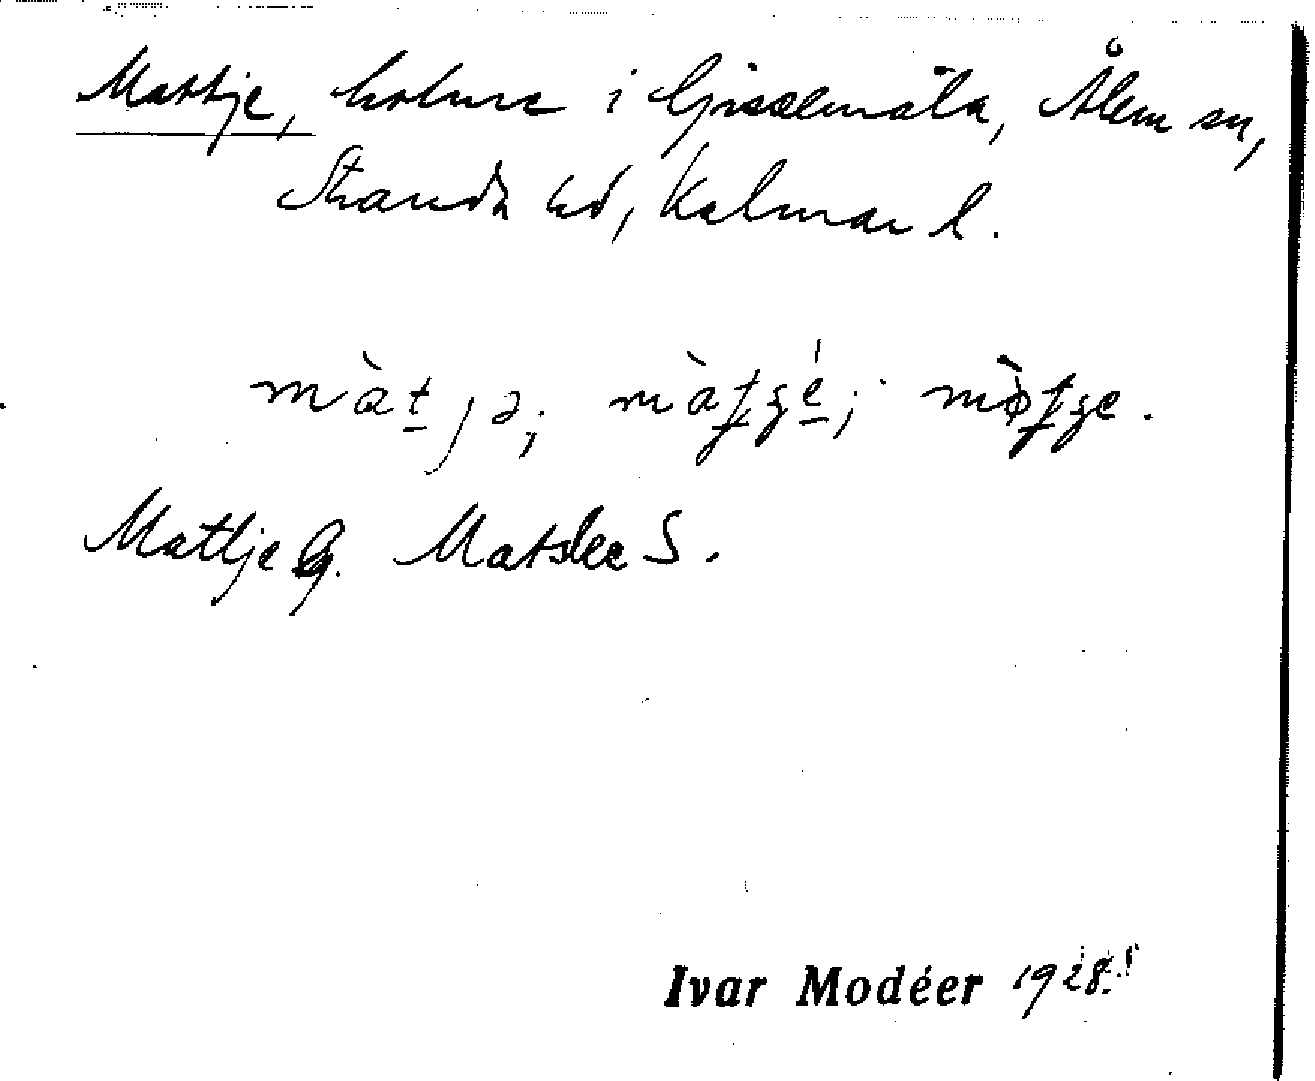 Mattje, holme i Gisslemåla, Ålem sn,
Stranda hd, Kalmar l.
màt̲jə;
Mattje G. Matskee S.
Ivar Modéer 1928.